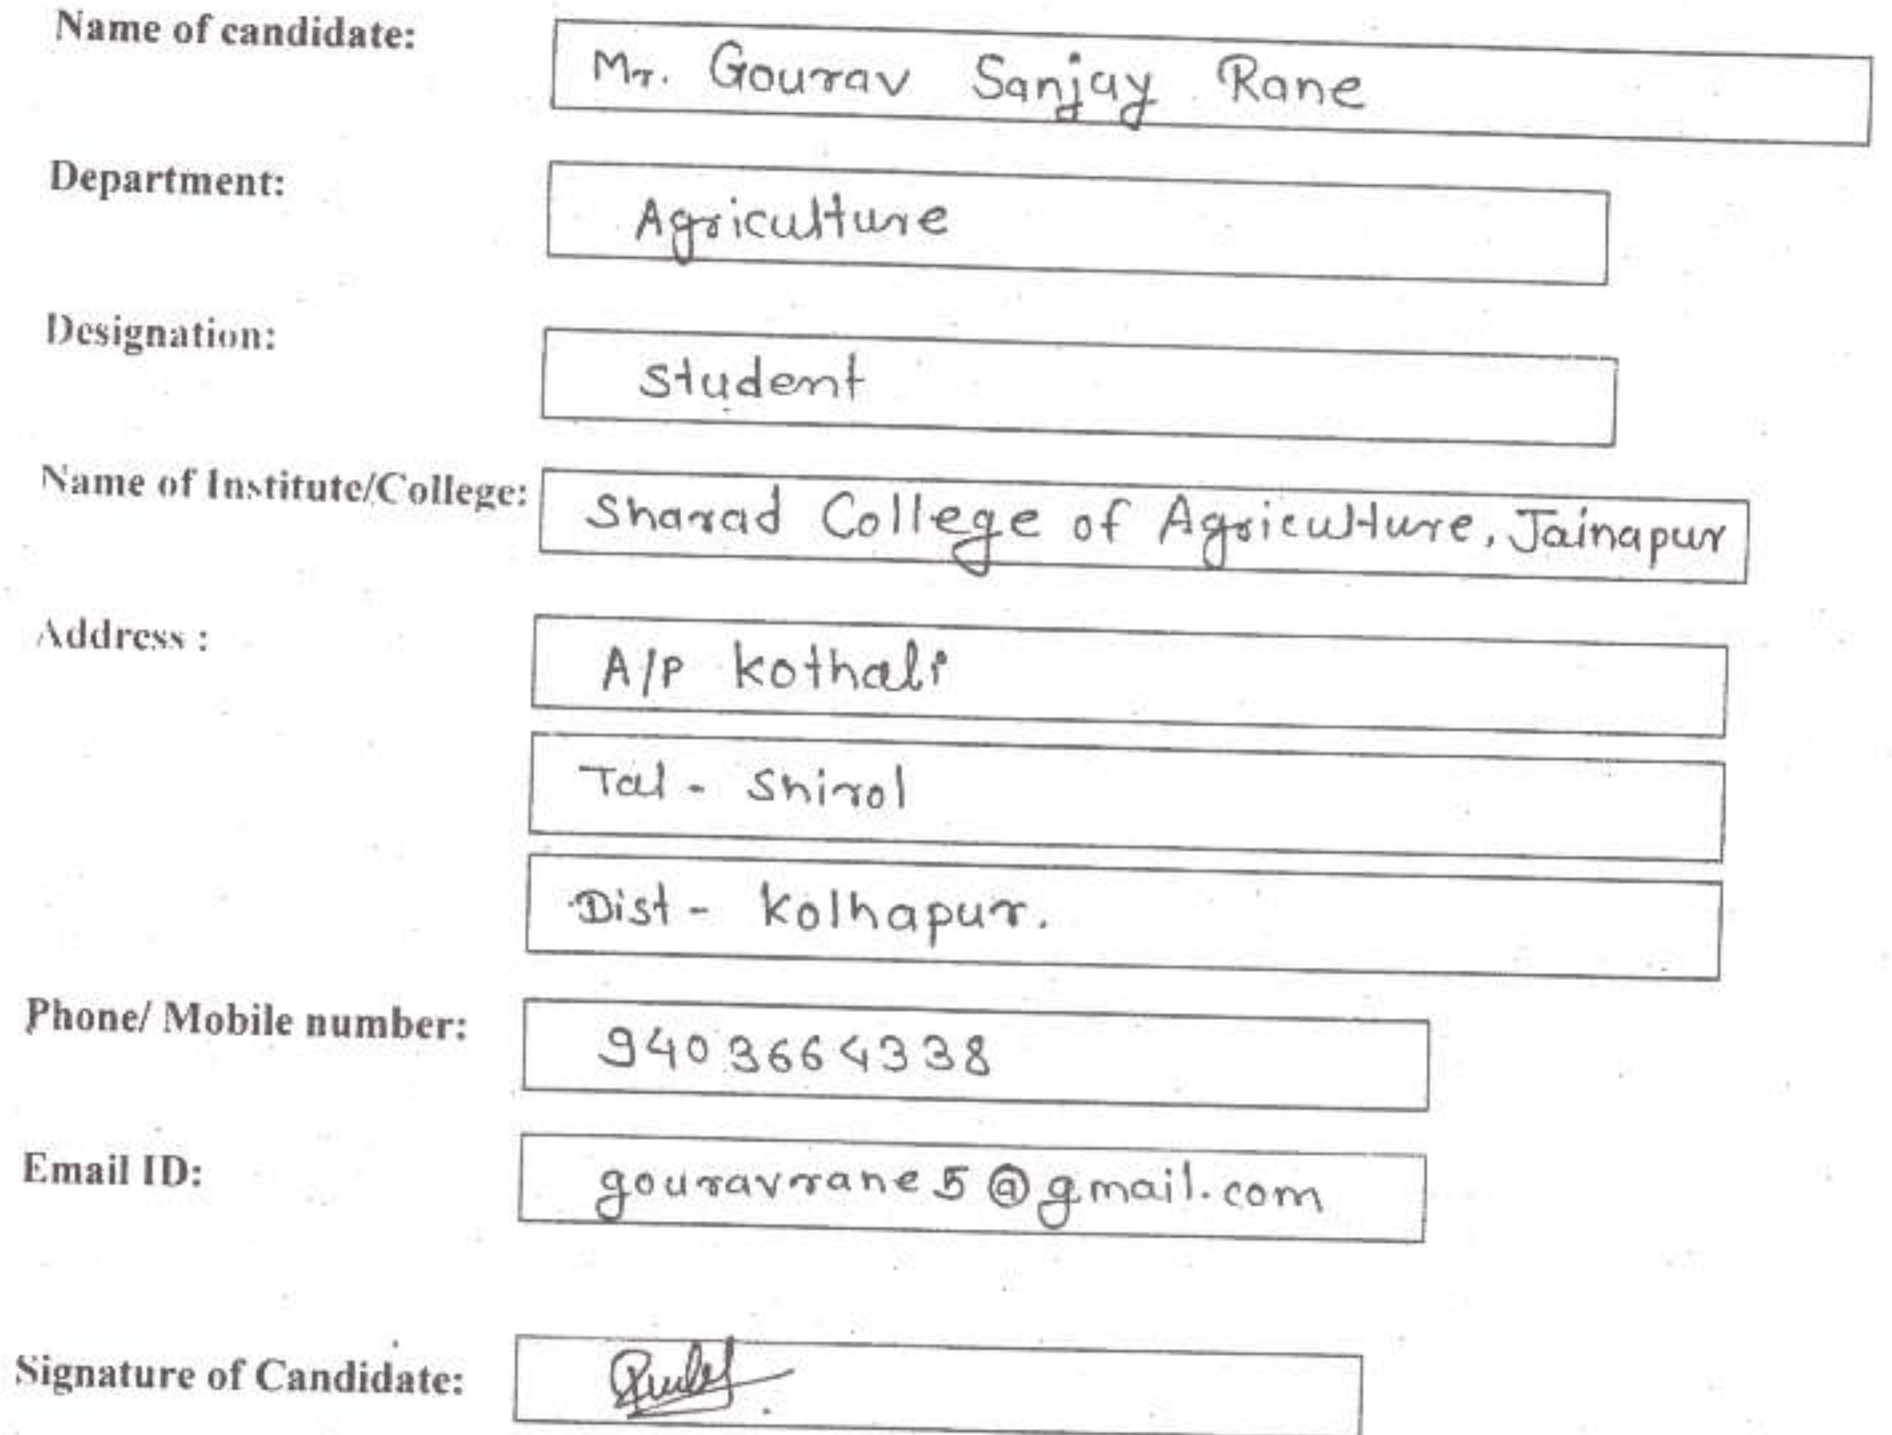 Name of candidate: Mr. Gourav Sanjay Rane
Department: Agriculture
Designation: Student
Name of Institute/College: Sharad College of Agriculture, Jainapur
Address : A/P Kothali
Tal - Shirol
Dist - Kolhapur.
Phone/ Mobile number: 9403664338
Email ID: gouravrane5@gmail.com
Signature of Candidate: